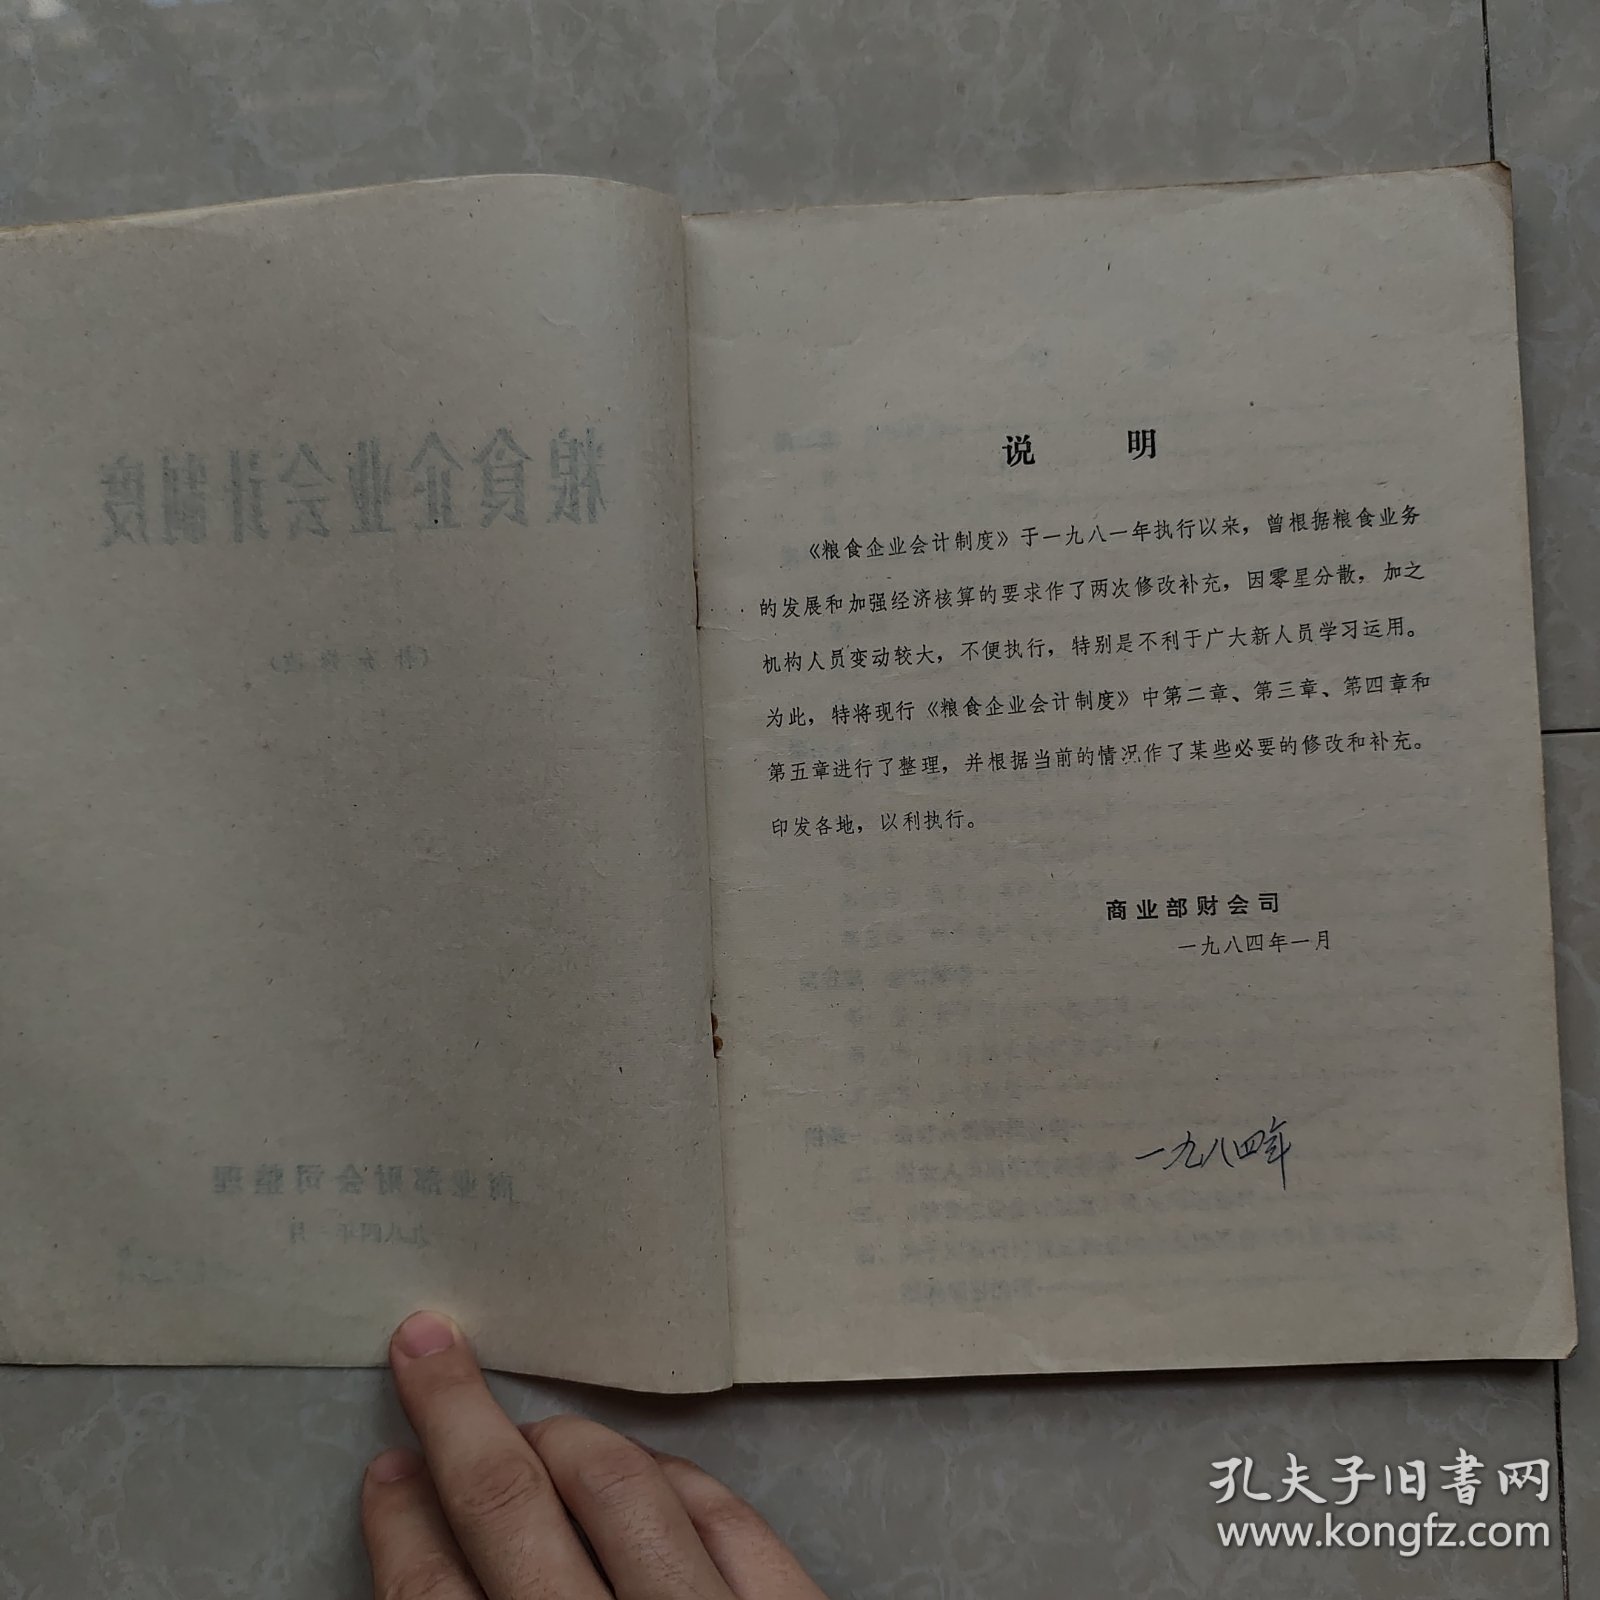 粮食企业会计制度
商业部财会司整理
一九八四年一月
说 明
《粮食企业会计制度》于一九八一年执行以来，曾根据粮食业务
的发展和加强经济核算的要求作了两次修改补充，因零星分散，加之
机构人员变动较大，不便执行，特别是不利于广大新人员学习运用。
为此，特将现行《粮食企业会计制度》中第二章、第三章、第四章和
第五章进行了整理，并根据当前的情况作了某些必要的修改和补充。
印发各地，以利执行。
商业部财会司
一九八四年一月
一九八四年
孔夫子旧书网
www.kongfz.com